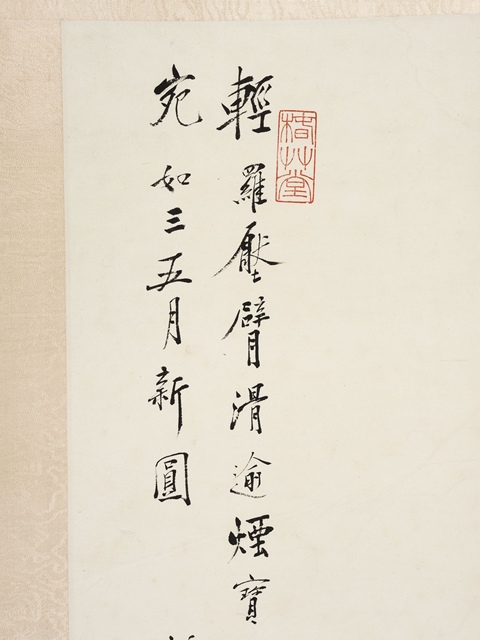 輕羅壓臂滑逾煙寶
宛如三五月新圓
草堂